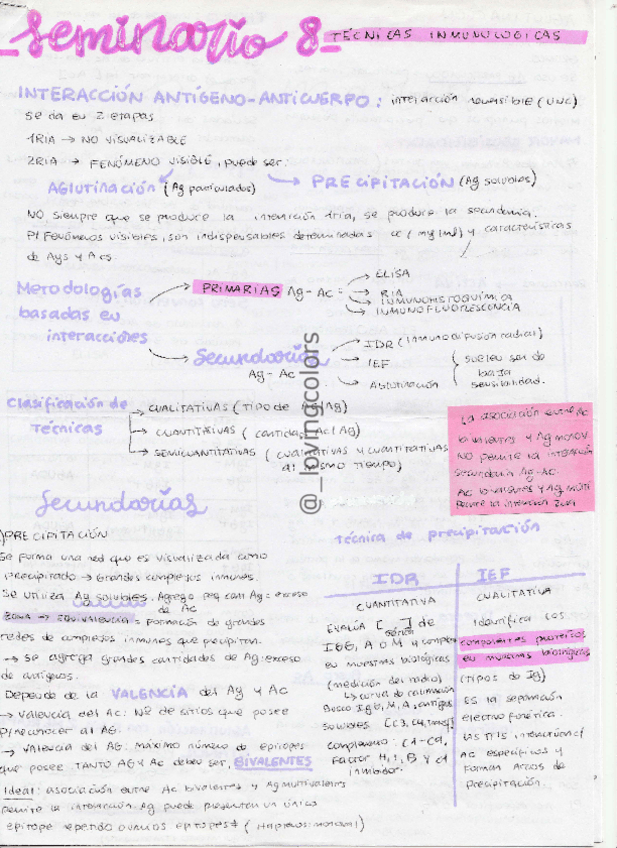 Seminario 8_ TÉCNICAS INMUNOLOGICAS
INTERACCIÓN ANTÍGENO-ANTICUERPO: interacción reversible (UNC)
se da en 2 etapas
1RIA → NO VISUALIZABLE
2RIA → FENÓMENO VISIBLE, puede ser:
AGLUTINACIÓN (Ag particulados) → PRECIPITACIÓN (Ag solubles)
NO siempre que se produce la interacción 1ria, se produce la secundaria.
P/ Fenómenos visibles, son indispensables determinadas cc (mg/ml) y características
de Ags y Acs.
Metodologías basadas en interacciones
PRIMARIAS Ag-Ac
ELISA
RIA
INMUNOHISTOQUÍMICA
INMUNOFLUORESCENCIA
Secundarias
Ag-Ac
IDR (inmunodifusión radial)
IEF
AGLUTINACIÓN
suelen ser de
baja
sensibilidad.
Clasificación de
Técnicas
CUALITATIVAS (TIPO de Ac/Ag)
CUANTITATIVAS (cantidad Ac/Ag)
SEMICUANTITATIVAS (cualitativas y cuantitativas
al mismo tiempo)
La asociación entre Ac
bivalentes y Ag monov.
NO permite la interacción
secundaria Ag-Ac.
Ac bivalentes y Ag multi
permite la interacción
@_lovingcolors
Secundarias
PRECIPITACIÓN
Se forma una red que es visualizada como
precipitado → Grandes complejos inmunes.
Se utiliza Ag solubles. Agrego peq cant Ag: exceso
de Ac
ZONA → EQUIVALENCIA = Formación de grandes
redes de complejos inmunes que precipitan.
→ Se agrega grandes cantidades de Ag: exceso
de antígenos.
Depende de la VALENCIA del Ag y Ac
→ Valencia del Ac: Nº de sitios que posee
P/ reconocer al AG.
→ Valencia del AG: máximo número de epítopes
que posee. TANTO AG y Ac deben ser BIVALENTES
Ideal: asociación entre Ac bivalentes y Ag multivalentes
permite la interacción. Ag puede presentar un único
epítope repetido o varios epítopes ≠
Técnica de precipitación
IDR
CUANTITATIVA
EVALÚA [ ] de
IGG, A o M y complem
en muestras biológicas
(medición del radio)
↳ curva de calibración
solubles
complemento: C1-C9,
Factor H, I, B y C1
inhibidor.
IEF
CUALITATIVA
Identifica los
componentes proteicos
en muestras biológicas
(TIPOS de Ig)
ES la separación
electroforética.
Ac específicos y
Forman Arcos de
Precipitación.